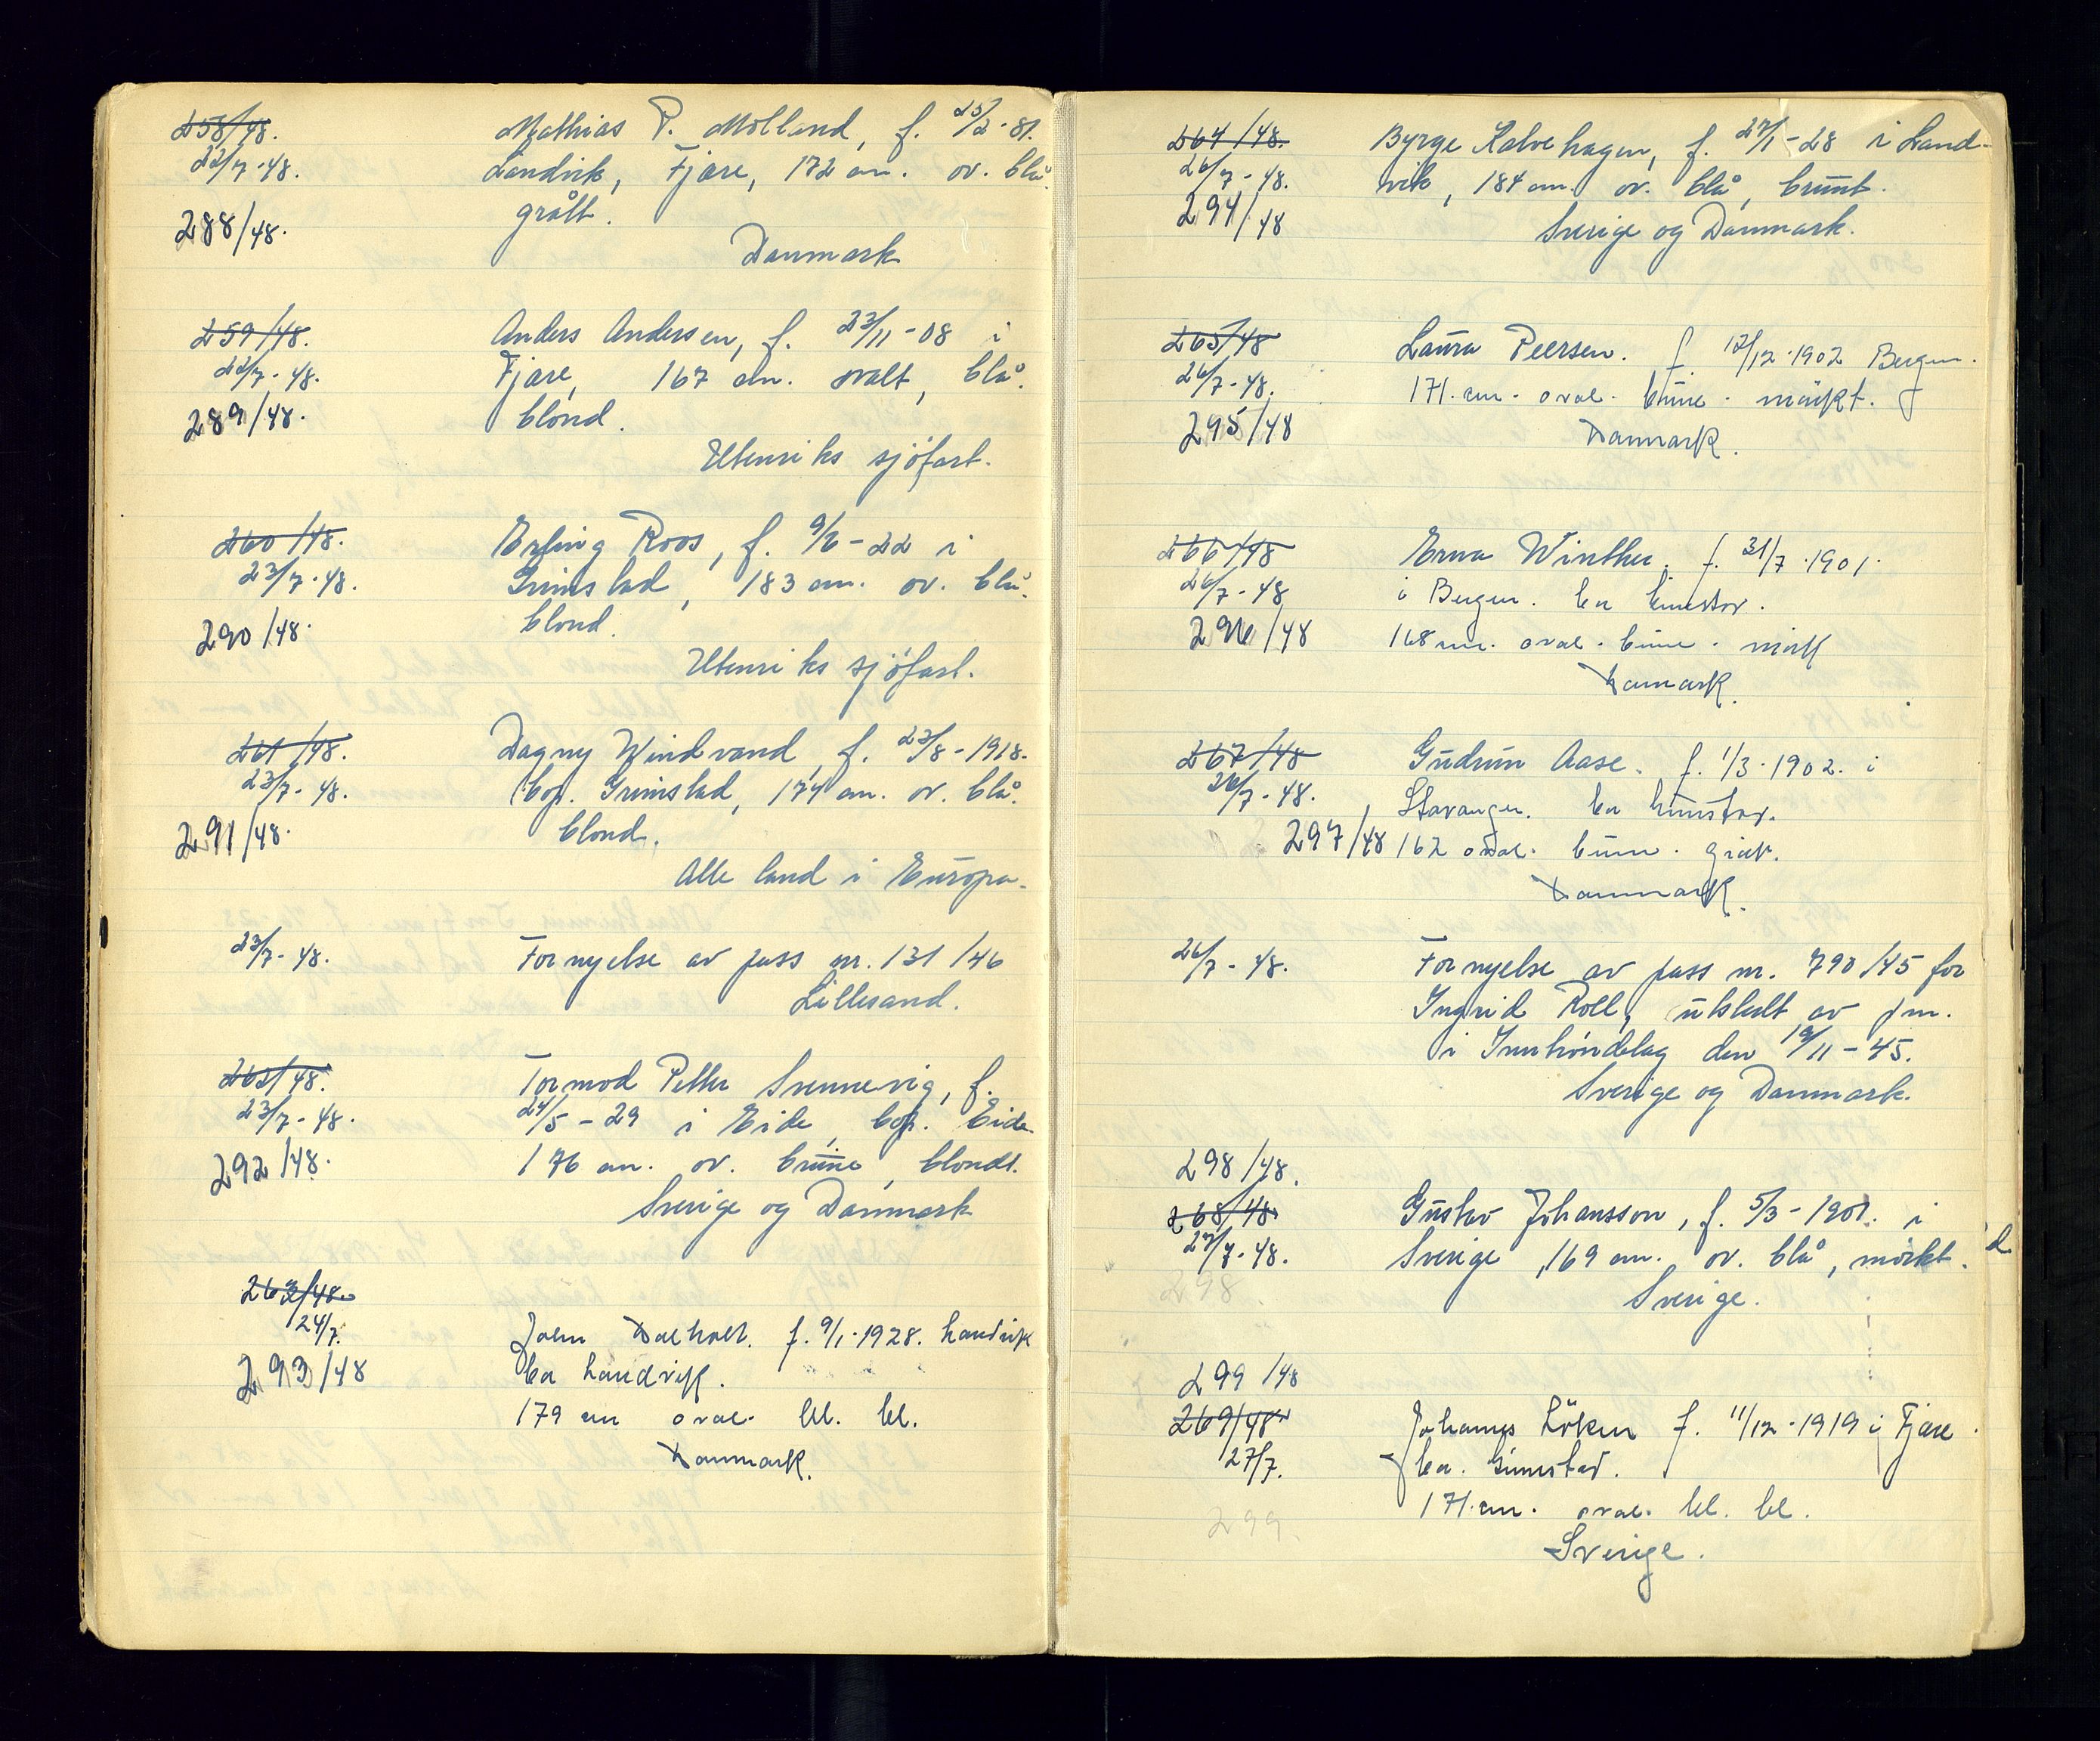 258/48.
22/7-48.
288/48.
Mathias P. Molland, f. 25/2-81.
Landvik, Fjære, 172 cm. ov. blå.
grått.
Danmark
259/48.
22/7-48.
289/48.
Anders Andersen, f. 23/11-08 i
Fjære, 167 cm. ovalt, blå.
blond.
Utenriks sjöfart.
260/48.
23/7-48.
290/48.
Erling Roos, f. 9/6-22 i
Grimstad, 183 cm. ov. blå.
blond.
Utenriks sjöfart.
261/48.
23/7-48.
291/48.
Dagny Windvand, f. 23/8-1918.
bop. Grimstad, 174 cm. ov. blå.
blond.
Alle land i Europa.
23/7-48.
Fornyelse av pass nr. 131/46
Lillesand.
262/48.
23/7-48.
292/48.
Tormod Petter Svennevig, f.
24/5-29 i Eide, bop. Eide.
176 cm. ov. brune, blondt.
Sverige og Danmark
263/48.
24/7.
293/48
John Dalholt. f. 9/1.1928. Landvik
ba Landvik.
179 cm oval. bl. bl.
Danmark.
264/48.
26/7-48.
294/48
Byrge Kalvehagen, f. 27/1-28 i Land-
vik, 184 cm. ov. blå, brunt.
Sverige og Danmark.
265/48
26/7-48.
295/48
Laura Peersen. f. 12/12.1902 Bergen.
171. cm. oval. brune. mörkt.
Danmark.
266/48
26/7-48
296/48
Erna Winther. f. 31/7.1901.
i Bergen. ba Grimstad.
168 cm. oval. brune. mörk
Danmark.
267/48
26/7-48.
297/48
Gudrun Aase. f. 1/3.1902. i
Stavanger. ba Grimstad.
162 oval. brune. grå.
Danmark.
26/7-48.
Fornyelse av pass nr. 790/45 for
Ingrid Roll, utstedt av pm.
i Inntröndelag den 19/11-45.
Sverige og Danmark.
298/48.
268/48
27/7-48.
298
Gustav Johansson, f. 5/3-1901. i
Sverige, 169 cm. ov. blå, mörkt.
Sverige.
299/48
269/48
27/7.
299.
Johannes Löken f. 11/12.1919 i Fjære.
ba. Grimstad.
171. cm. oval. bl. bl.
Sverige.